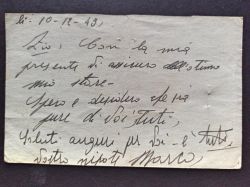 li - 10-12-43,
Zio, Con la mia
presente di assicuro dell'ottimo
mio stare -
Spero e desidero che sia
pure di Voi tutti,
Saluti auguri per Voi - e tutti,
vostro nipote Marco,